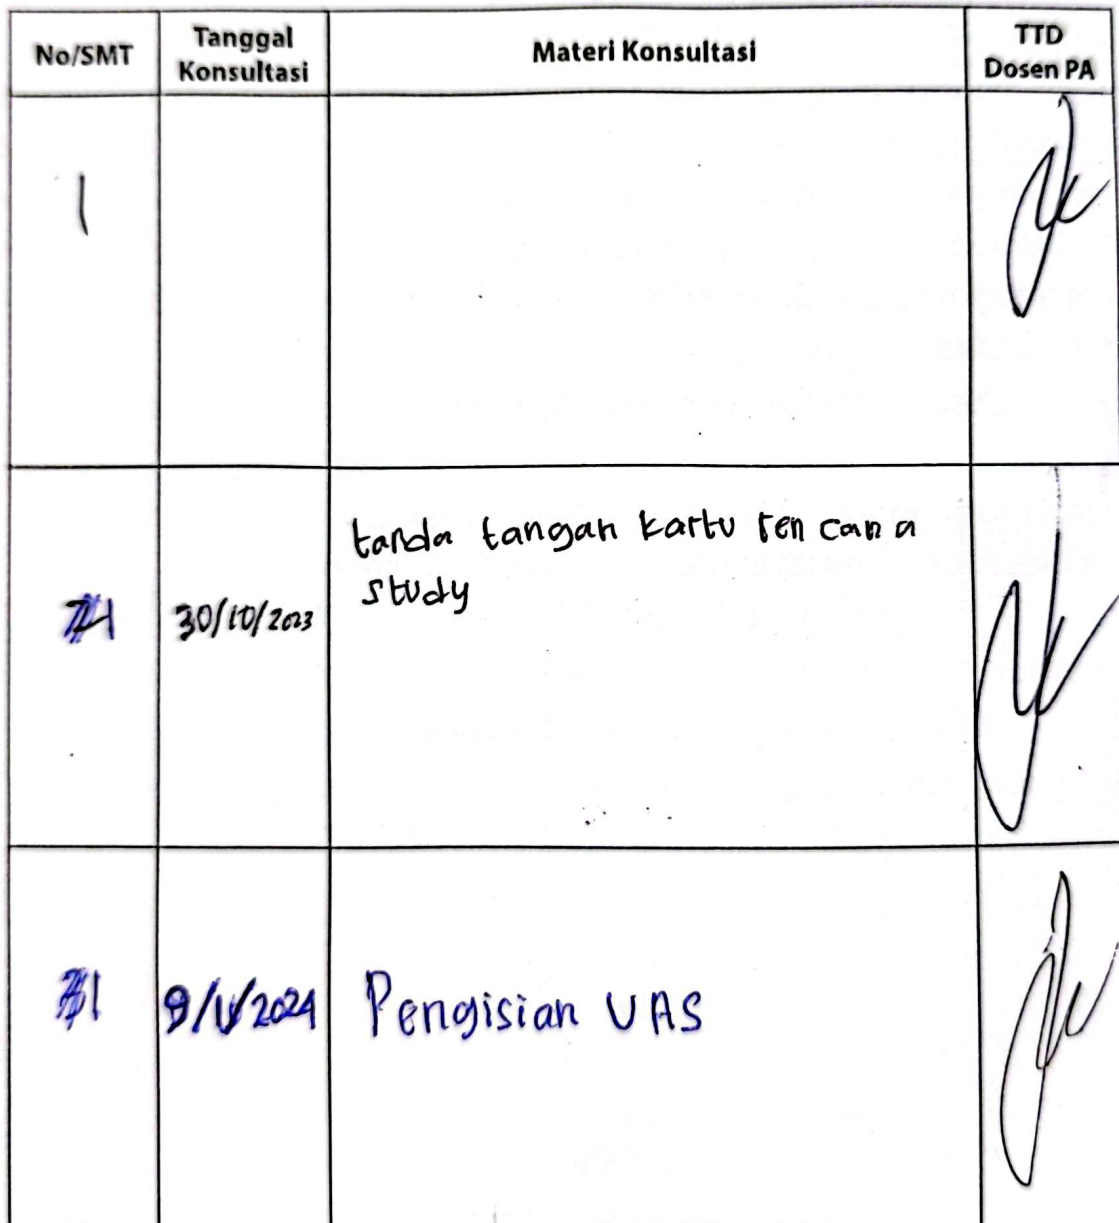 No/SMT
Tanggal
Konsultasi
Materi Konsultasi
TTD
Dosen PA
1
1
30/10/2023
tanda tangan kartu ren cana
study
1
2024
Pengisian UAS